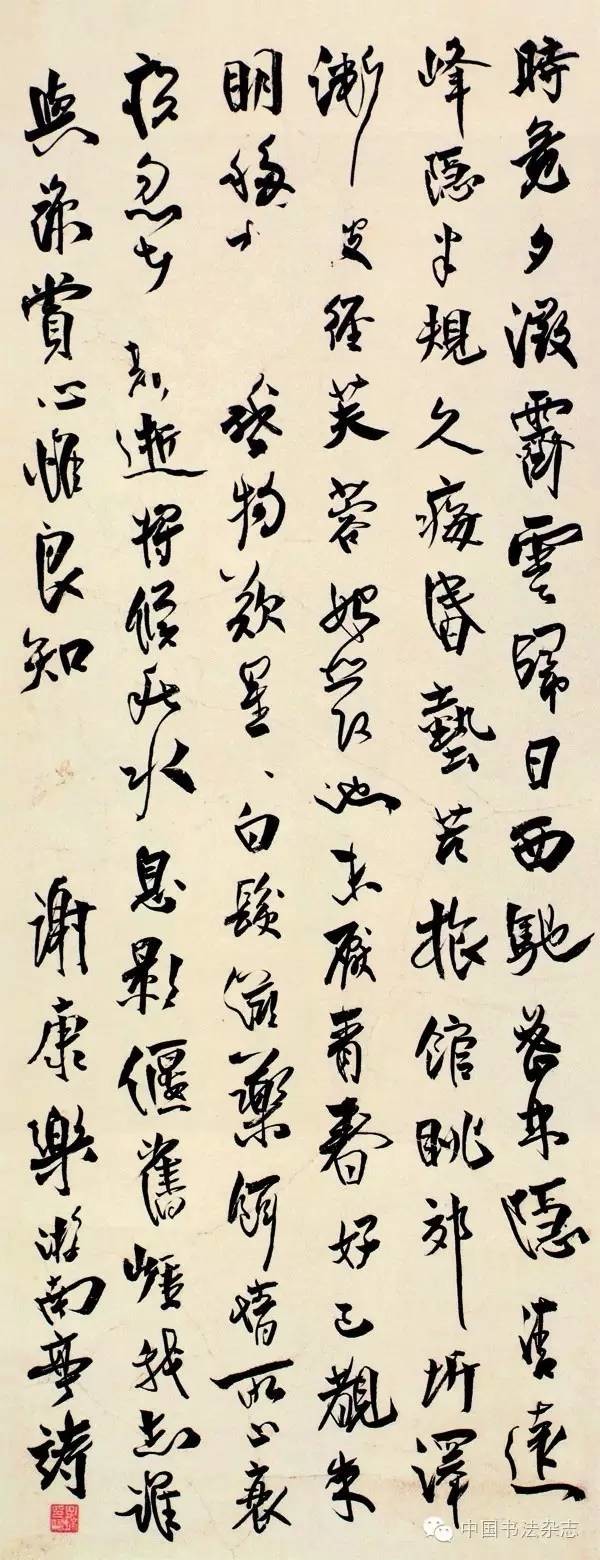 時竟夕澂霽雲歸日西馳密林隱清遠
峰隱半規久痗昏墊苦旅館眺郊圻澤
漸被徑芙蓉始發池未厭青春好已觀朱
明移感物歎星〻白髮藥餌情所止衰
疾忽在逝將候秋水息影偃舊崖我志誰
與亮賞心惟良知 謝康樂游南亭詩
中国书法杂志